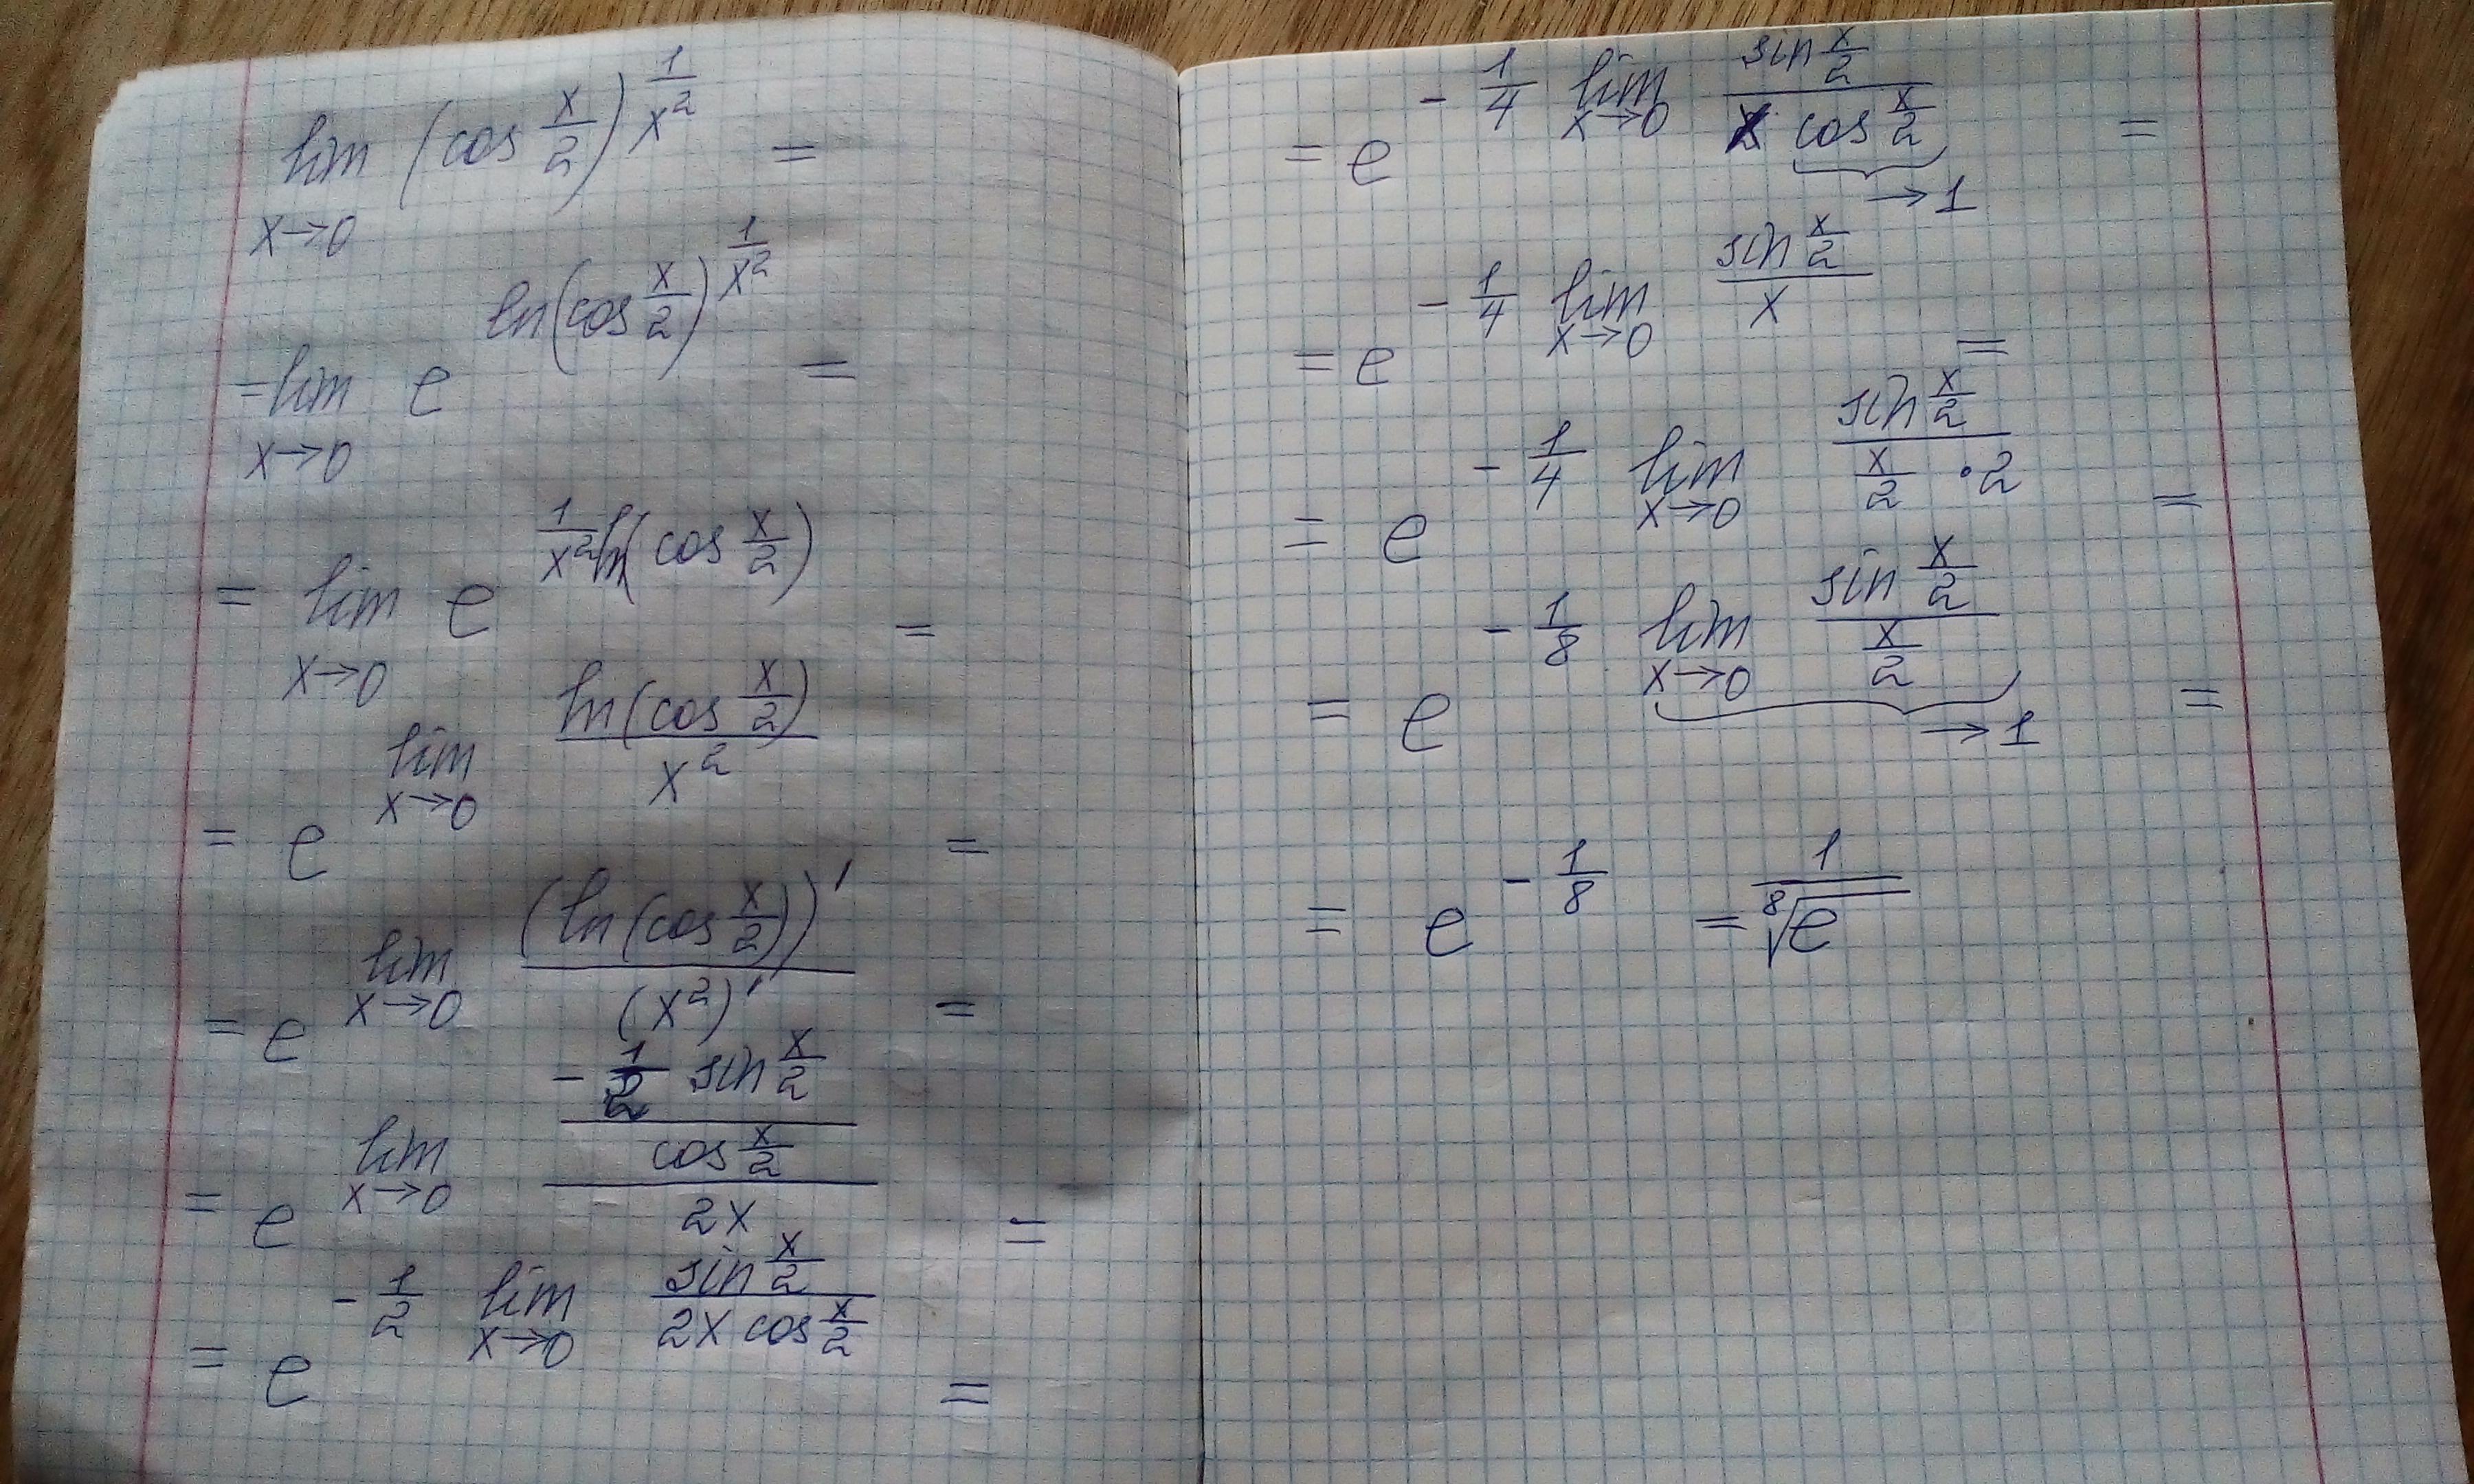 lim x→0 (cos x/2)^(1/x²) =
= lim x→0 e^(ln(cos x/2)^(1/x²)) =
= lim x→0 e^(1/x² ln(cos x/2)) =
= e^(lim x→0 ln(cos x/2)/x²) =
= e^(lim x→0 (ln(cos x/2))'/(x²)') =
= e^(lim x→0 ((-1/2 sin x/2)/(cos x/2))/(2x)) =
= e^(-1/2 lim x→0 (sin x/2)/(2x cos x/2)) =
= e^(-1/4 lim x→0 (sin x/2)/(x cos x/2)) =
→1
= e^(-1/4 lim x→0 (sin x/2)/x) =
= e^(-1/4 lim x→0 (sin x/2)/(x/2 · 2)) =
= e^(-1/8 lim x→0 (sin x/2)/(x/2)) =
→1
= e^(-1/8) = 1/⁸√e